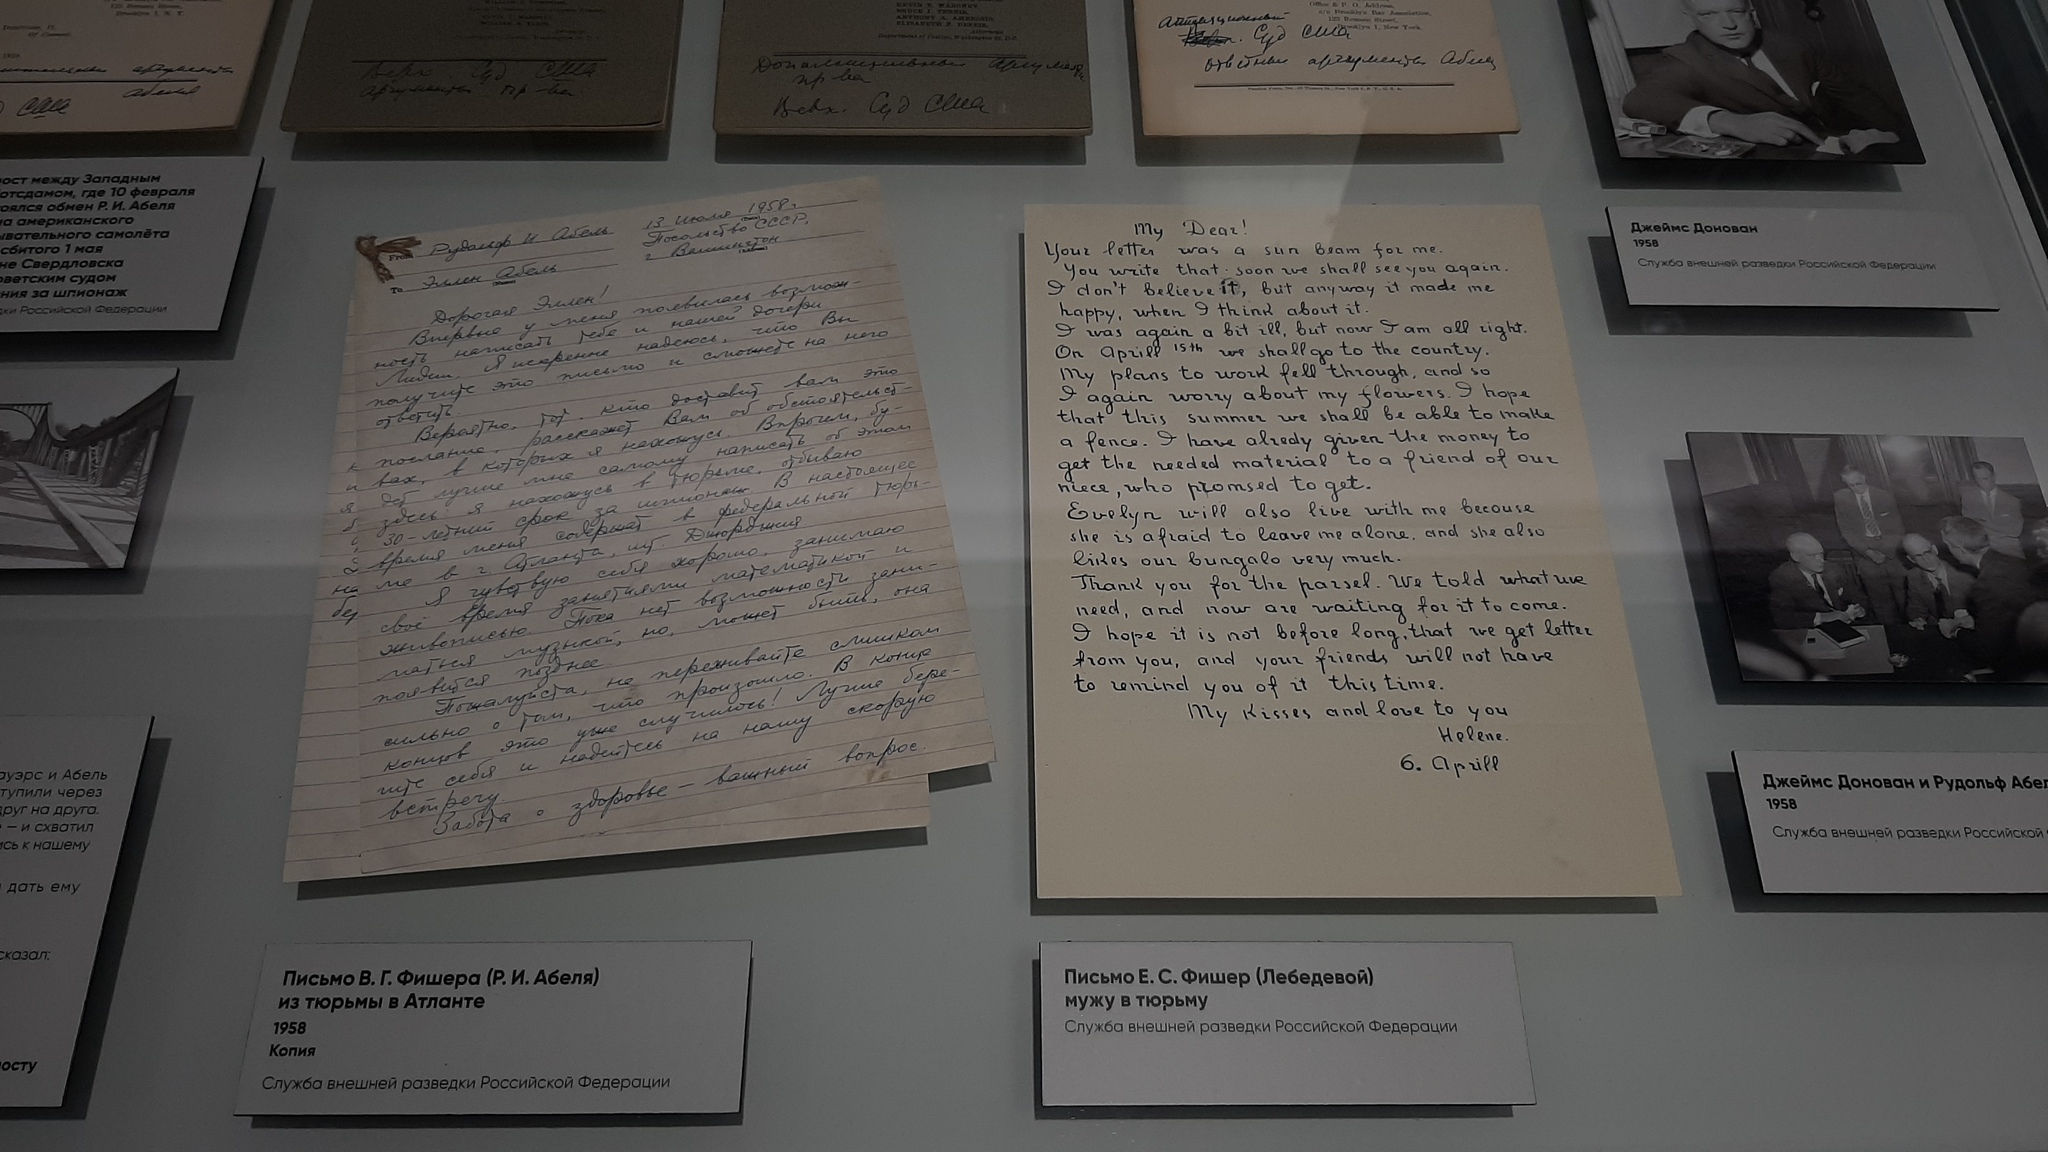 123 Remsen Street,
Department of Justice, Washington, D.C.
Верх. Суд США
аргументы пр-ва
KEVIN T. MARONEY,
BRUCE J. TERRIS,
ANTHONY A. AMBROSIO,
Attorneys
Department of Justice, Washington, D.C.
Дополнительные
пр-ва
Верх. Суд США
Office & P. O. Address,
c/o Brooklyn Bar Association,
123 Remsen Street,
Brooklyn 1, New York.
Суд США
ответные аргументы Абеля
США
ост между Западным
отсдамом, где 10 февраля
оялся обмен Р. И. Абеля
на американского
ывательного самолёта
сбитого 1 мая
не Свердловска
оветским судом
ния за шпионаж
ки Российской Федерации
Рудольф И Абель
13 Июля 1958 г.
Посольство СССР,
г Вашингтон
From
To Эллен Абель
Дорогая Эллен!
Впервые у меня появилась возмож-
ность написать тебе и нашей дочери
Лидии. Я искренне надеюсь, что Вы
получите это письмо и сможете на него
ответить.
Вероятно, тот, кто доставит вам это
послание, расскажет Вам об обстоятельст-
вах, в которых я нахожусь. Впрочем, бу-
дет лучше мне самому написать об этом
здесь я нахожусь в тюрьме, отбываю
30-летний срок за шпионаж. В настоящее
время меня содержат в федеральной тюрь-
ме в г Атланта, шт. Джорджия
Я чувствую себя хорошо, занимаю
своё время занятиями математикой и
живописью. Пока нет возможности зани-
маться музыкой, но, может быть, она
появится позднее.
Пожалуйста, не переживайте слишком
сильно о том, что произошло. В конце
концов это уже случилось! Лучше бере-
гите себя и надейтесь на нашу скорую
встречу.
Забота о здоровье – важный вопрос.
My Dear!
Your letter was a sun beam for me.
You write that soon we shall see you again.
I don't believe it, but anyway it made me
happy, when I think about it.
I was again a bit ill, but now I am all right.
On Aprill 15th we shall go to the country.
My plans to work fell through, and so
I again worry about my flowers. I hope
that this summer we shall be able to make
a fence. I have alredy given the money to
get the needed material to a friend of our
niece, who promsed to get.
Evelyn will also live with me becouse
she is afraid to leave me alone, and she also
likes our bungalo very much.
Thank you for the parsel. We told what we
need, and now are waiting for it to come.
I hope it is not before long, that we get letter
from you, and your friends will not have
to remind you of it this time.
My Kisses and love to you
Helene.
6. Aprill
Джеймс Донован
1958
Служба внешней разведки Российской Федерации
Джеймс Донован и Рудольф Абел
1958
Служба внешней разведки Российской
ауэрс и Абель
тупили через
друг на друга.
– и схватил
ись к нашему
дать ему
сказал:
мосту
Письмо В. Г. Фишера (Р. И. Абеля)
из тюрьмы в Атланте
1958
Копия
Служба внешней разведки Российской Федерации
Письмо Е. С. Фишер (Лебедевой)
мужу в тюрьму
Служба внешней разведки Российской Федерации